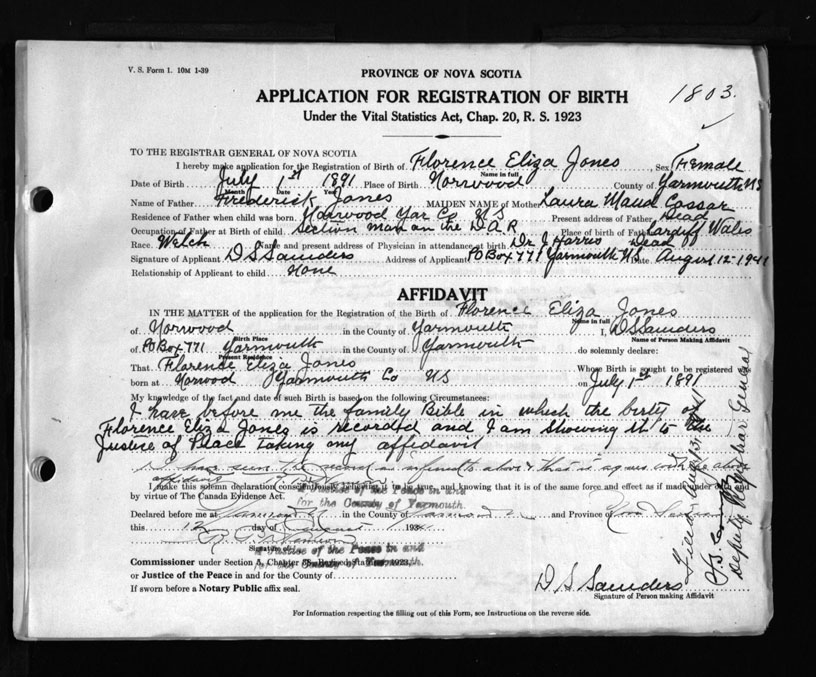 V. S. Form 1. 10M 1-39
PROVINCE OF NOVA SCOTIA
1803.
APPLICATION FOR REGISTRATION OF BIRTH
Under the Vital Statistics Act, Chap. 20, R. S. 1923
TO THE REGISTRAR GENERAL OF NOVA SCOTIA
I hereby make application for the Registration of Birth of Florence Eliza Jones Sex Female
Name in full
Date of Birth July 1st 1891 Place of Birth Norwood County of Yarmouth NS
Month Date Year
Name of Father Frederick Jones MAIDEN NAME of Mother Laura Maud Cossar
Residence of Father when child was born Norwood Yar Co NS Present address of Father Dead
Occupation of Father at Birth of child. Section man on the D A R Place of birth of Father Cardiff Wales
Race. Welch Name and present address of Physician in attendance at birth Dr J Harris Dead
Signature of Applicant D S Saunders Address of Applicant PO Box 771 Yarmouth NS Date August 12-1941
Relationship of Applicant to child None
AFFIDAVIT
IN THE MATTER of the application for Registration of the Birth of Florence Eliza Jones
Name in full
of Norwood in the County of Yarmouth I, D S Saunders
Birth Place Name of Person Making Affidavit
of PO Box 771 Yarmouth in the County of Yarmouth do solemnly declare:
Present Residence
That Florence Eliza Jones Whose Birth is sought to be registered
born at Norwood Yarmouth Co NS on July 1st 1891
My knowledge of the fact and date of such Birth is based on the following Circumstances:
I have before me the family Bible in which the birth of
Florence Eliza Jones is recorded and I am showing it to the
Justice of Peace taking my affidavit
I have seen the record as referred to above & that it agrees with the above
affidavit
I make this solemn declaration conscientiously believing it to be true, and knowing that it is of the same force and effect as if made under oath and
by virtue of The Canada Evidence Act.
A Justice of the Peace in and
for the County of Yarmouth.
Declared before me at Yarmouth in the County of Yarmouth and Province of Nova Scotia
this 12 day of August 1941
Signature
A Justice of the Peace in and
for the County of Yarmouth.
Commissioner under Section 5, Chapter Revised Statutes 1923,
or Justice of the Peace in and for the County of
If sworn before a Notary Public affix seal.
D S Saunders
Signature of Person making Affidavit
For Information respecting the filling out of this Form, see Instructions on the reverse side.
Filed
Deputy Registrar General